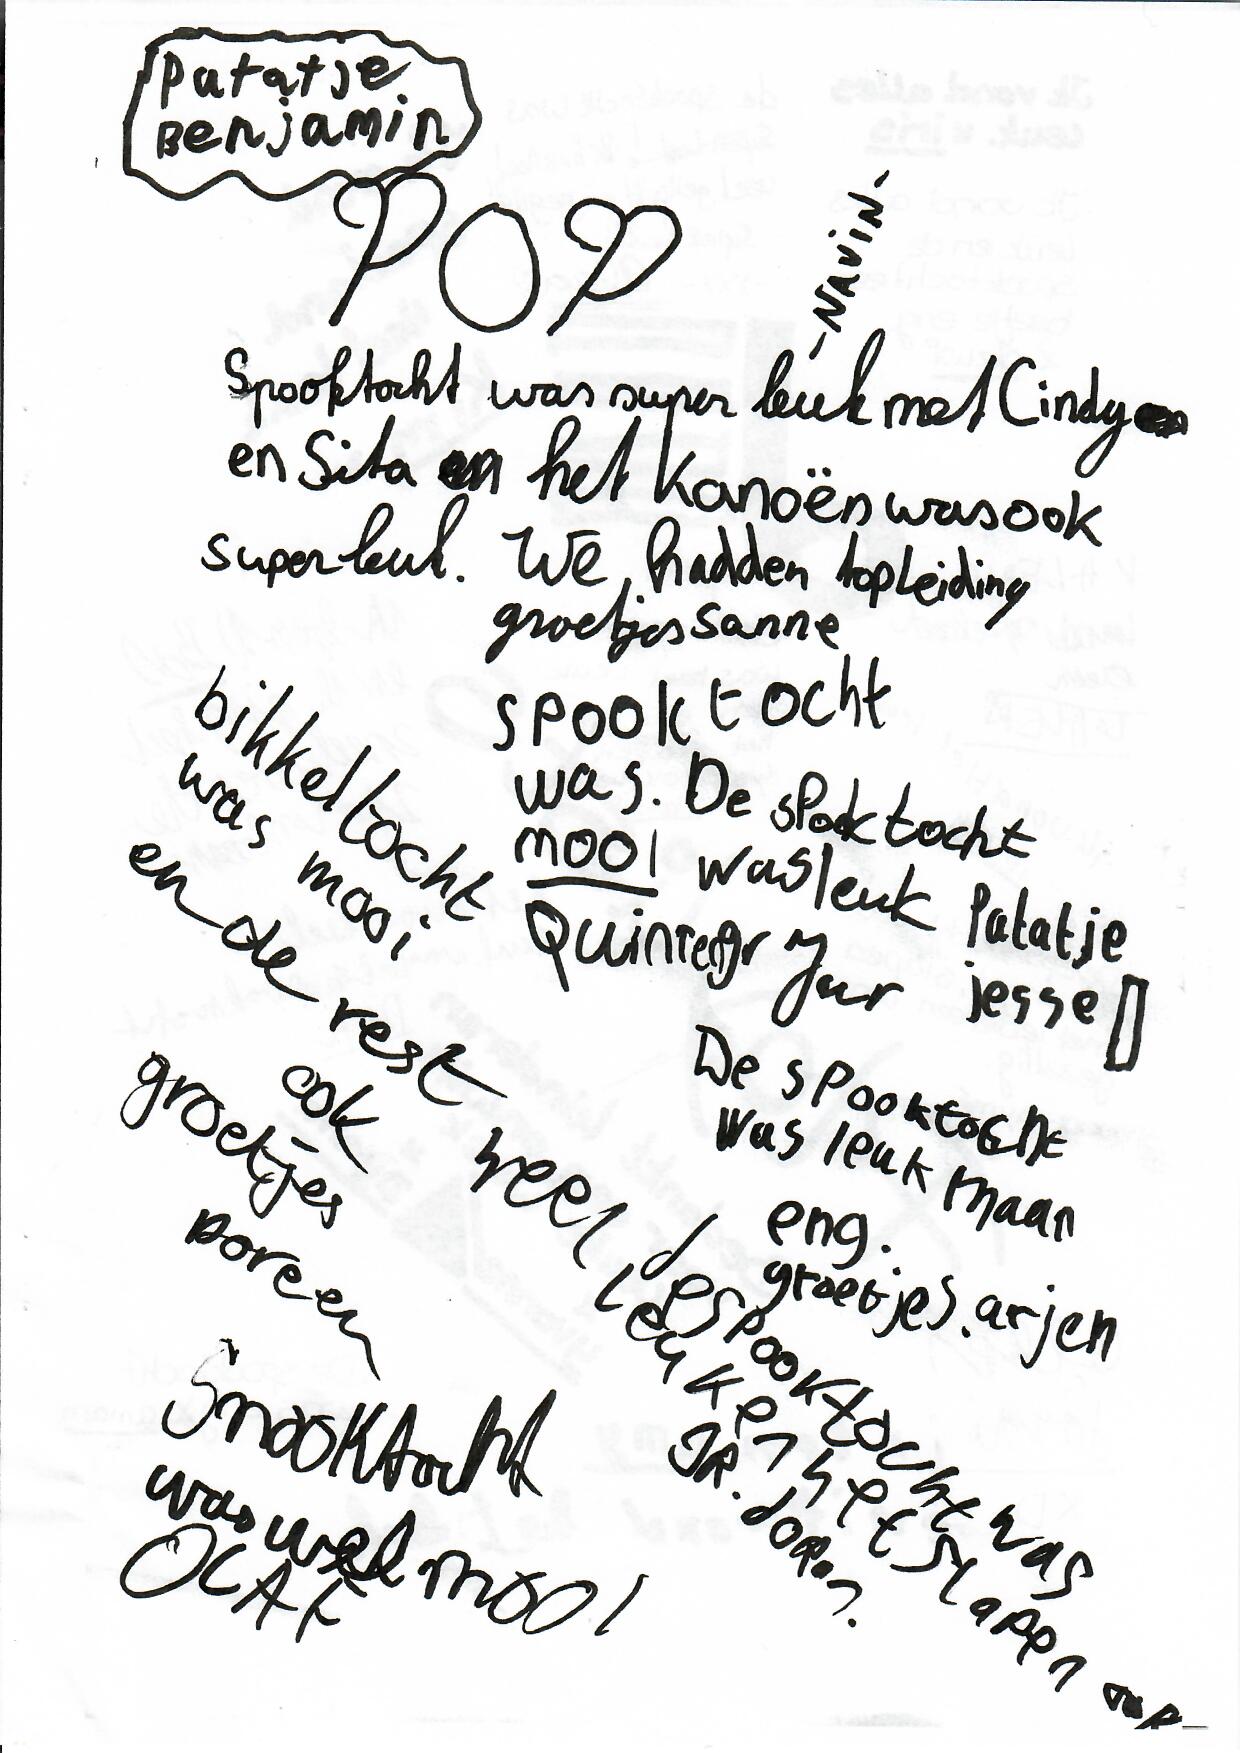 Patatje
Benjamin
POP
-NAVIN-
Spooktocht was super leuk met Cindy
en Sita en het Kanoën was ook
superleuk. We hadden topleiding
groetjes Sanne
spooktocht
was.
mooi
Quinten
De spooktocht
was leuk
jur
Patatje
jesse
bikkeltocht
was mooi
en de rest
ook heel
groetjes
Doreen
De spooktocht
was leuk maar
eng.
groetjes. arjen
de spooktocht was
leuk en het slapen
Snooktocht
was wel mooi
OLAF